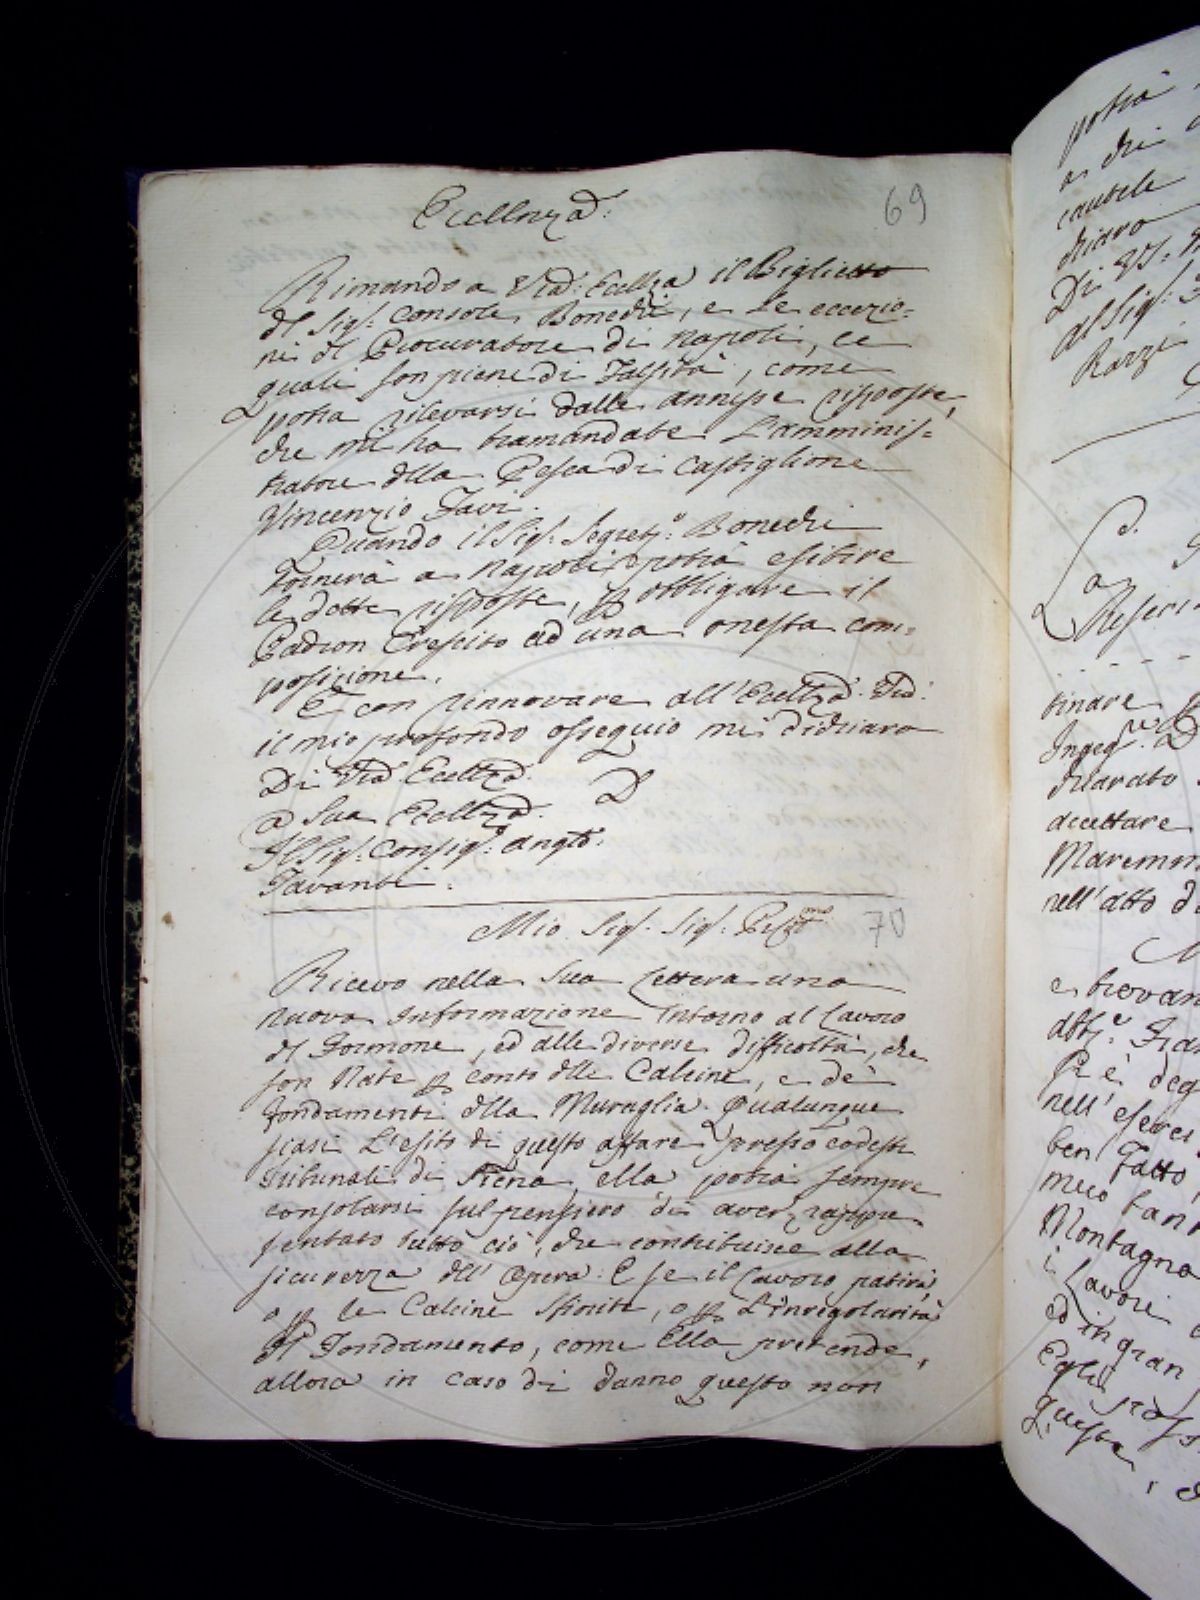 69
Eccellenza.
Rimando a Vra. Ecellza il Biglietto
del Sigr. Console Bonechi, e le eccezio=
ni del Procuratore di Napoli, le
quali son piene di Falsità, come
potrà rilevarsi dalle annesse risposte,
che mi ha tramandate L'amminis=
tratore della Pesca di Castiglione
Vincenzio Favi.
Quando il Sigr. Segreto. Bonechi
Tornerà a Napoli potrà esibire
le dette risposte, per obbligare il
Padron Crescito ad una onesta com=
posizione.
E con rinnovare all'Ecellza. Vra.
il mio profondo ossequio mi dichiaro
Di Vra Ecellza.
a Sua Ecellza.
Il Sigr. Consigr. Anglo.
Tavanti.
70
Mio Sigr. Sigr.
Ricevo nella Sua Lettera una
nuova Informazione intorno al Lavoro
del Formone, ed alle diverse difficoltà, che
son Nate per conto delle Calcine, e de'
fondamenti della Muraglia. Qualunque
siasi L'esito di questo affare presso codesti
Tribunali di Siena, ella potrà sempre
consolarsi sul pensiero di aver rappre
sentato tutto ciò, che contribuisce alla
sicurezza dell'Opera. E se il Lavoro patirà,
o per le Calcine sfiorite, o per L'irregolarità
del Fondamento, come Ella pretende,
allora in caso di danno questo non
potrà
a chi
cautele
chiaro
Di VS.
al Sigr.
Razzi
La
tinare
Ingegre.
dichiarato
accettare
Maremm
nell'atto d
e trovan
P è deg
nell'eserci
ben Fatto,
meco tan
Montagna
i Lavori
ed in gran
Egli
questa,